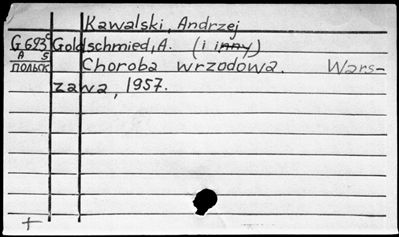 Kawalski, Andrzej
G693c Goldschmied, A. (i inny)
A 5
ПОЛЬСК Choroba wrzodowa. Wars-
zawa, 1957.
+